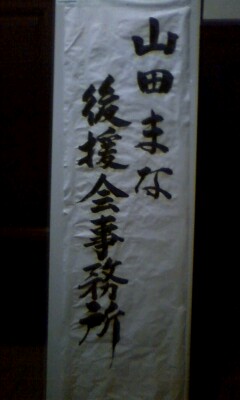 山田まな
後援会事務所